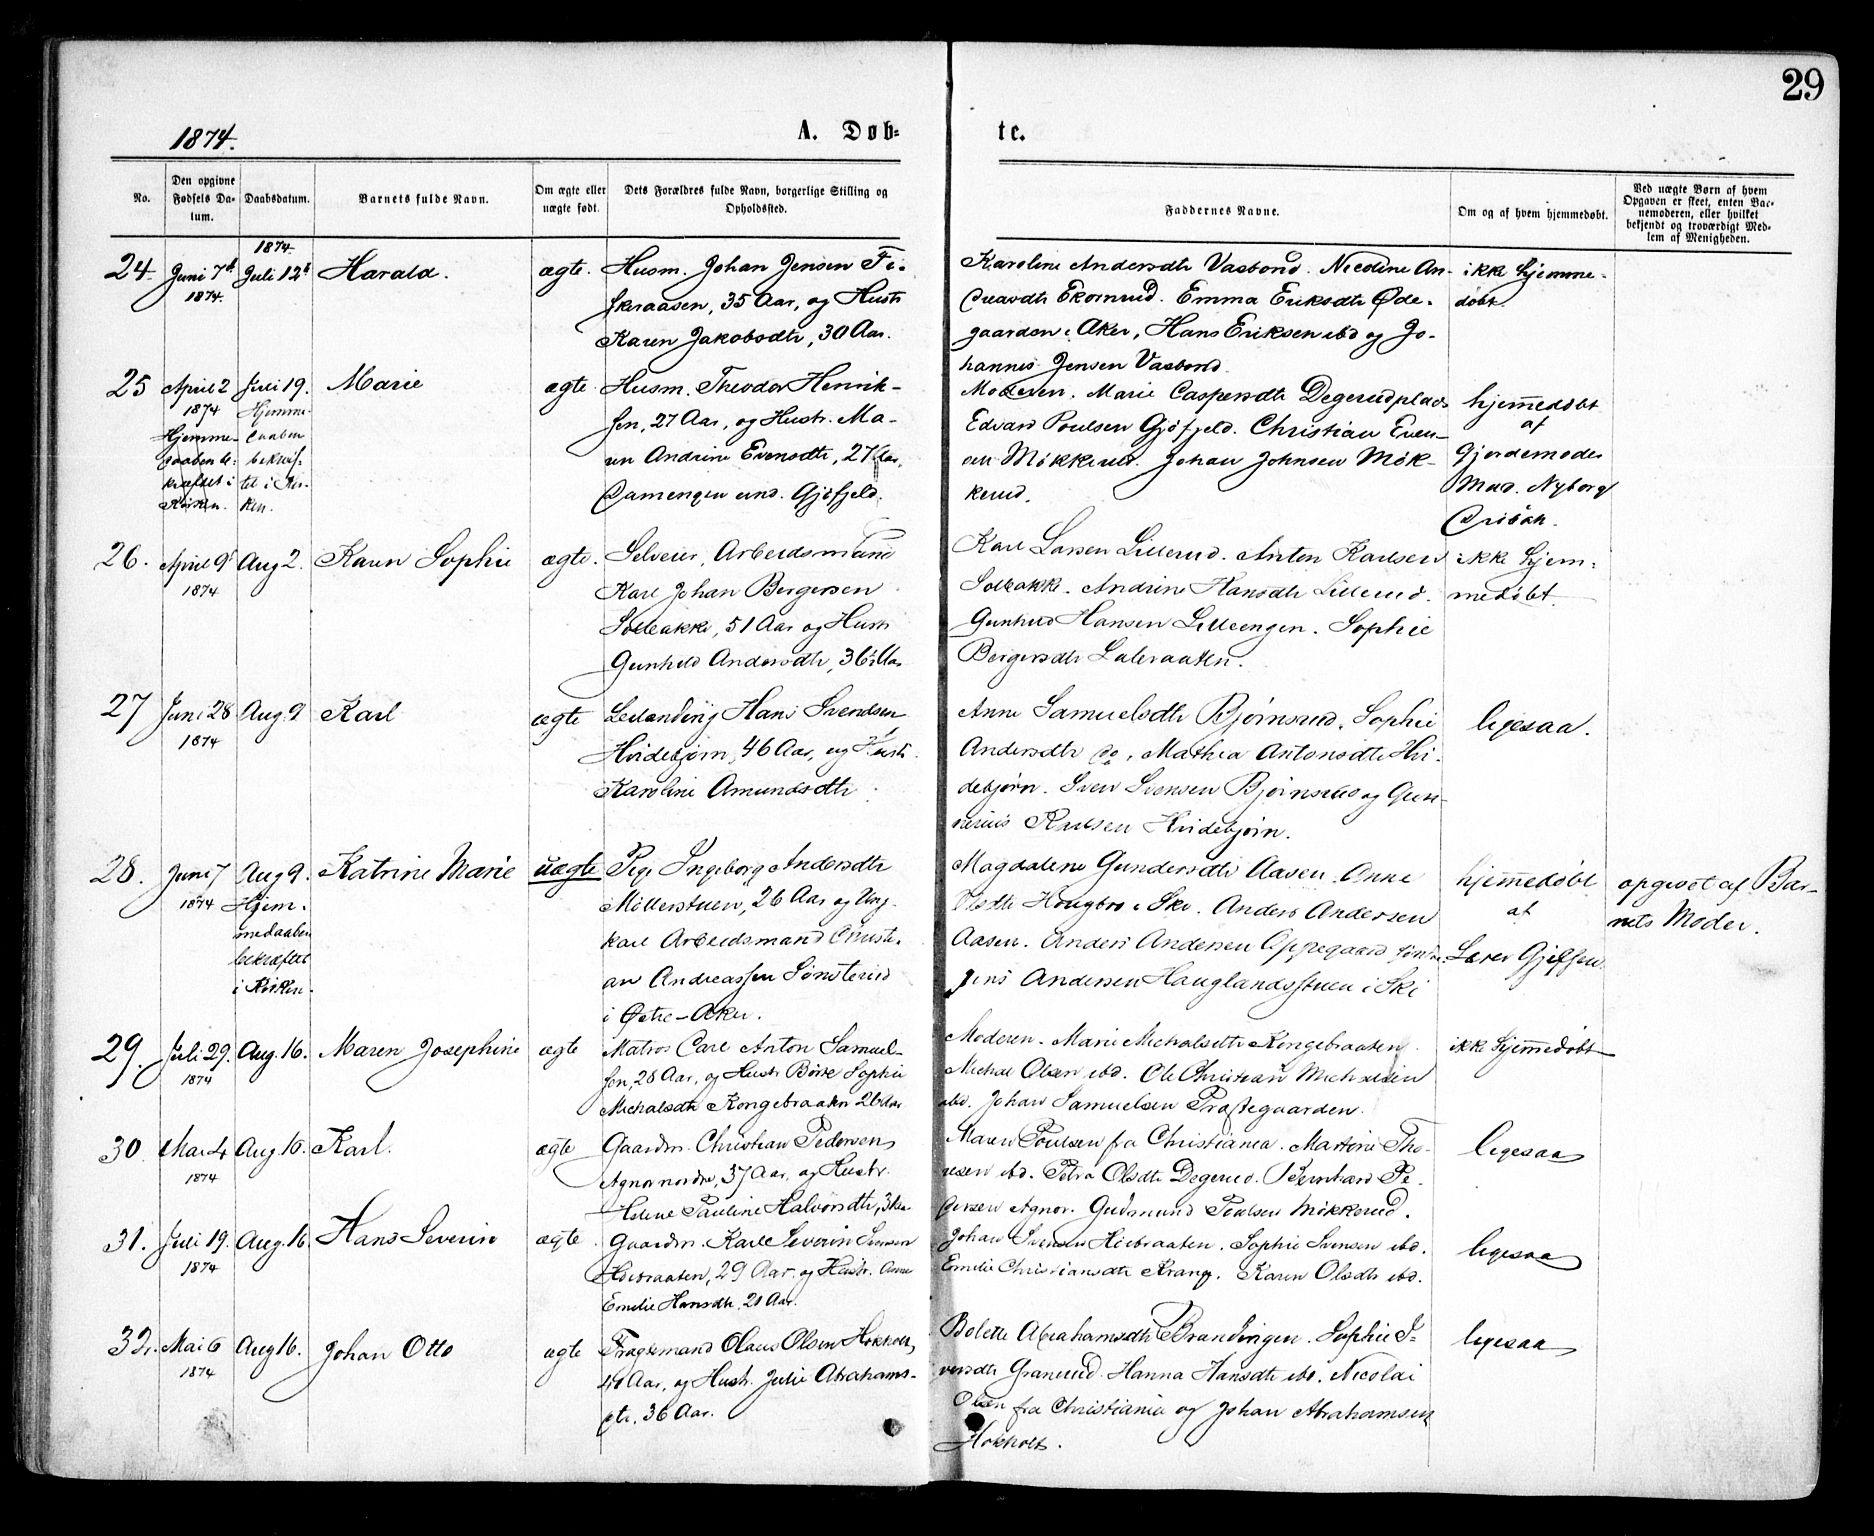 29
1874.
A. Døb-
te.
No.
Den opgivne Fødsels Da-
tum.
Daabsdatum.
Barnets fulde Navn.
Om ægte eller
uægte født.
Dets Forældres fulde Navn, borgerlige Stilling og
Opholdssted.
Faddernes Navne.
Om og af hvem hjemmedøbt.
Ved uægte Børn af hvem
Opgaven er skeet, enten Bar-
nemoderen, eller hvilket
bekjendt og troværdigt Med-
lem af Menigheden.
24.
Juni 7de
1874.
1874
Juli 12te
Harald.
ægte.
Husm. Johan Jensen Fi-
skeraasen, 35 Aar, og Hustr
Karen Jakobsdtr, 30 Aar.
Karoline Andersdtr Vasbond. Nicoline An-
dreasdtr Ekornrud. Emma Eriksdtr Øde-
gaarden i Aker, Hans Eriksen ibd og Jo-
hannes Jensen Vasbond.
ikke hjemme-
døbt.
25
April 2
1874
Hjemme-
daaben be-
kræftet i
Kirken.
Juli 19.
Hjemme-
daaben
bekræf-
tet i Kir-
ken.
Marie
ægte.
Husm. Theodor Henrik-
sen, 27 Aar, og Hustr. Ma-
ren Andrine Evensdtr, 27 Aar,
Damengen und. Gjøfjeld.
Moderen. Marie Caspersdtr Degerudplads
Edvard Poulsen Gjøfjeld. Christian Even-
sen Møkkerud. Johan Johnsen Møk-
kerud.
hjemmedøbt
af
Gjordemoder
Mad. Nyborg
Drøbak.
26.
April 9de
1874
Aug 2.
Karen Sophie
ægte.
Selveier, Arbeidsmand
Karl Johan Bergersen
Solbakke, 51 Aar og Hustr
Gunhild Andersdtr, 36 Aar
Karl Larsen Lillerud. Anton Karlsen
Solbakke. Andrine Hansdtr Lillerud.
Hansen Lilleengen. Sophie
Bergersdtr
ikke hjem-
medøbt.
27
Juni 28
1874
Aug. 9
Karl
ægte
Leilending Hans Svendsen
Hvidebjørn, 46 Aar, og Hustr.
Karoline Amundsdtr
Anne Samuelsdtr Bjørnsrud. Sophie
Andersdtr do, Mathea Antonsdtr Hvi-
debjørn. Sven Svensen Bjørnsrud og Gun-
nerius Karlsen Hvidebjørn.
ligesaa.
28.
Juni 7
1874
Aug 9.
Hjem-
medaaben
bekræftet
i Kirken.
Katrine Marie
uægte
Pige Ingeborg Andersdtr
Møllerstuen, 26 Aar og Ung-
karl Arbeidsmand Christi-
an Andreassen Sønsterud
i Østre-Aker.
Magdalene Gundersdtr Aasen. Anne
Olsdtr Haugbro i Ski. Anders Andersen
Aasen. Anders Andersen Oppegaard
Jens Andersen Hauglandsstuen i Ski
hjemmedøbt
af
Lærer Gjefsen.
opgivet af Bar-
nets Moder.
29.
Juli 29.
1874
Aug. 16.
Maren Josephine
ægte
Matros Carl Anton Samuel-
sen, 28 Aar, og Hustr Sophie
Michalsdtr Kongebraaten 26 Aar
Moderen. Marie Michalsdtr Kongebraaten.
Michal Olsen ibd. Ole Christian Michalsen
ibd. Johan Samuelsen Præstegaarden.
ikke hjemmedøbt
30
Mai 4
1874
Aug. 16.
Karl.
ægte
Gaardm. Christian Pedersen
Agnor nordre, 37 Aar, og Hustr.
Helene Pauline Halvorsdtr, 31 Aar
Maren Poulsen fra Christiania. Martine Tho-
resen ibd. Petra Olsdtr Degerud. Bernhard Pe-
dersen Agnor. Gudmund Poulsen Møkkerud.
ligesaa
31.
Juli 19.
1874
Aug. 16
Hans Severin
ægte
Gaardm. Karl Severin Svensen
Høibraaten, 29 Aar og Hustr. Anne
Emilie Hansdtr, 21 Aar.
Johan Svensen Høibraaten. Sophie Svensen ibd.
Emilie Christiansdtr Krange. Karen Olsdtr ibd.
ligesaa
32.
Mai 6
1874
Aug 16.
Johan Otto
ægte
Fragtemand Olaus Olsen Hokholt,
41 Aar, og Hustr. Julie Abrahams-
dtr, 36 Aar.
Bolette Abrahamsdtr Brandingen. Sophie I-
versdtr Granerud. Hanna Hansdtr ibd. Nicolai
Olsen fra Christiania og Johan Abrahamsen
Hokholt.
ligesaa